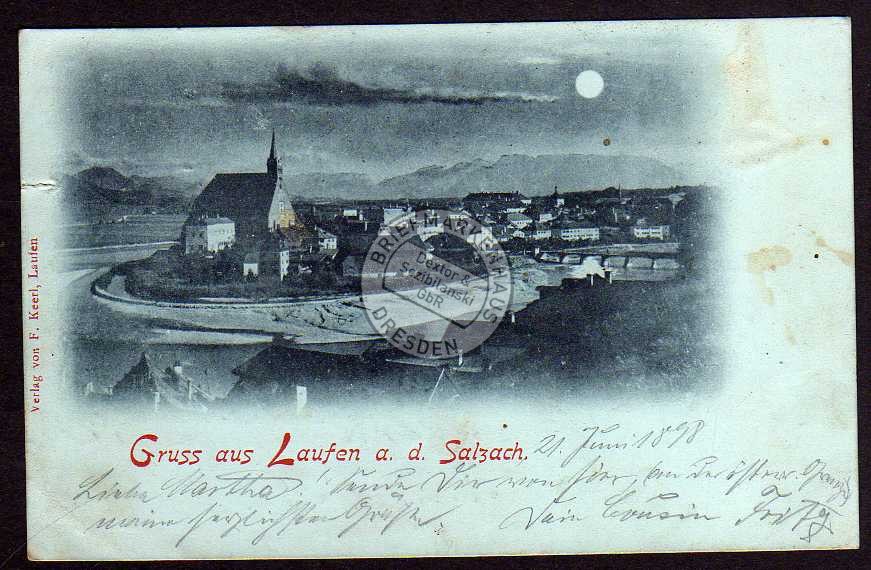 Verlag von F. Keerl, Laufen
BRIEFMARKENHAUS
Dextor &
Sezibilanski
GbR
DRESDEN
Gruss aus Laufen a. d. Salzach.
21. Juni 1898
Liebe Martha! Sende Dir von hier, an der österr. Grenze
meine herzlichsten Grüße. Dein Cousin Fritz